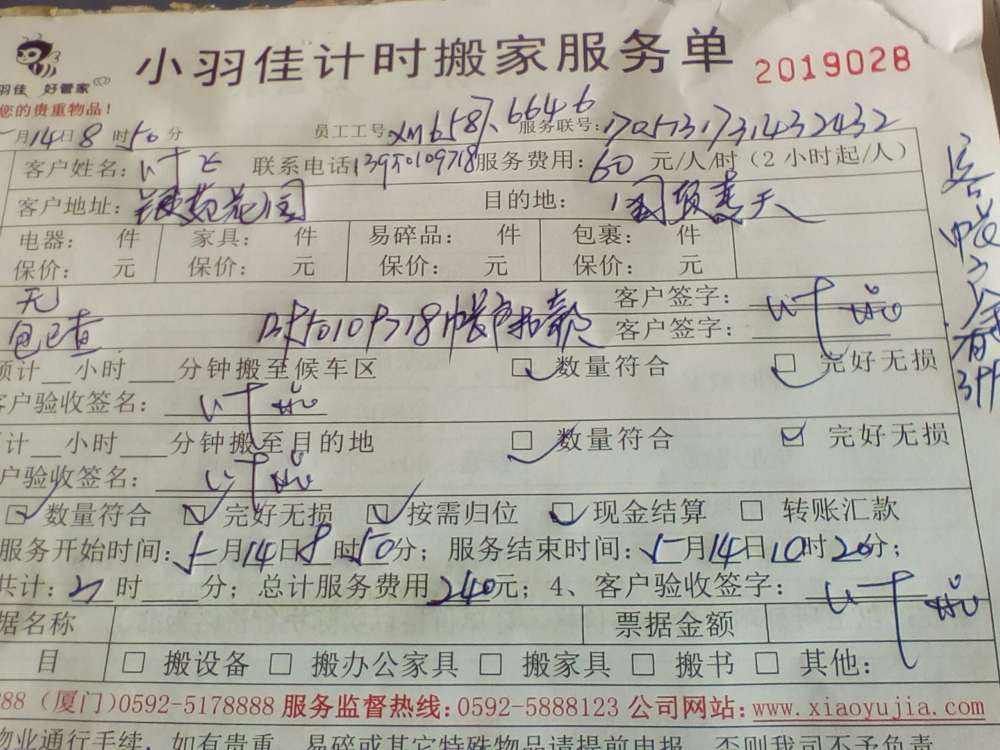 小羽佳计时搬家服务单 2019028
羽佳 好管家
您的贵重物品!
月14日8时50分 员工工号: 服务联号: 1705731731432432
客户姓名: 叶 联系电话 服务费用: 60 元/人/时(2小时起/人)
客户地址: 花园 目的地:
电器: 件 家具: 件 易碎品: 件 包裹: 件
保价: 元 保价: 元 保价: 元 保价: 元
无 客户签字: 叶
包已查 客户签字:
预计__小时___分钟搬至候车区 ☑ 数量符合 ☑ 完好无损
客户验收签名: 叶
计__小时___分钟搬至目的地 ☑ 数量符合 ☑ 完好无损
户验收签名: 叶
☑ 数量符合 ☑ 完好无损 ☑ 按需归位 ☑ 现金结算 □ 转账汇款
服务开始时间: 5月14日8时50分; 服务结束时间: 5月14日10时20分;
共计: 2时 分; 总计服务费用240元; 4、客户验收签字: 叶
据名称 票据金额
目 □ 搬设备 □ 搬办公家具 □ 搬家具 □ 搬书 □ 其他:
888 (厦门)0592-5178888 服务监督热线:0592-5888123 公司网站:www.xiaoyujia.com
物业通行手续,如有贵重、易碎或其它特殊物品请提前申报,否则我司不予负责